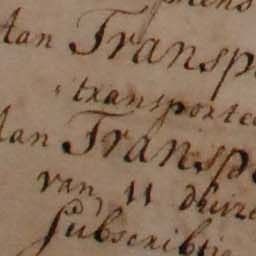 Aan Transp
transporte
Aan Transp
van 11 duize
Subscribtie